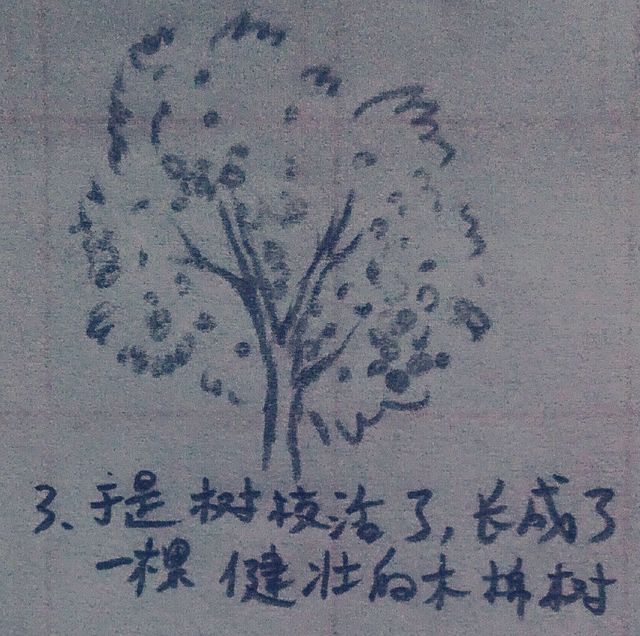 3、于是树枝活了,长成了
一棵健壮的木棉树